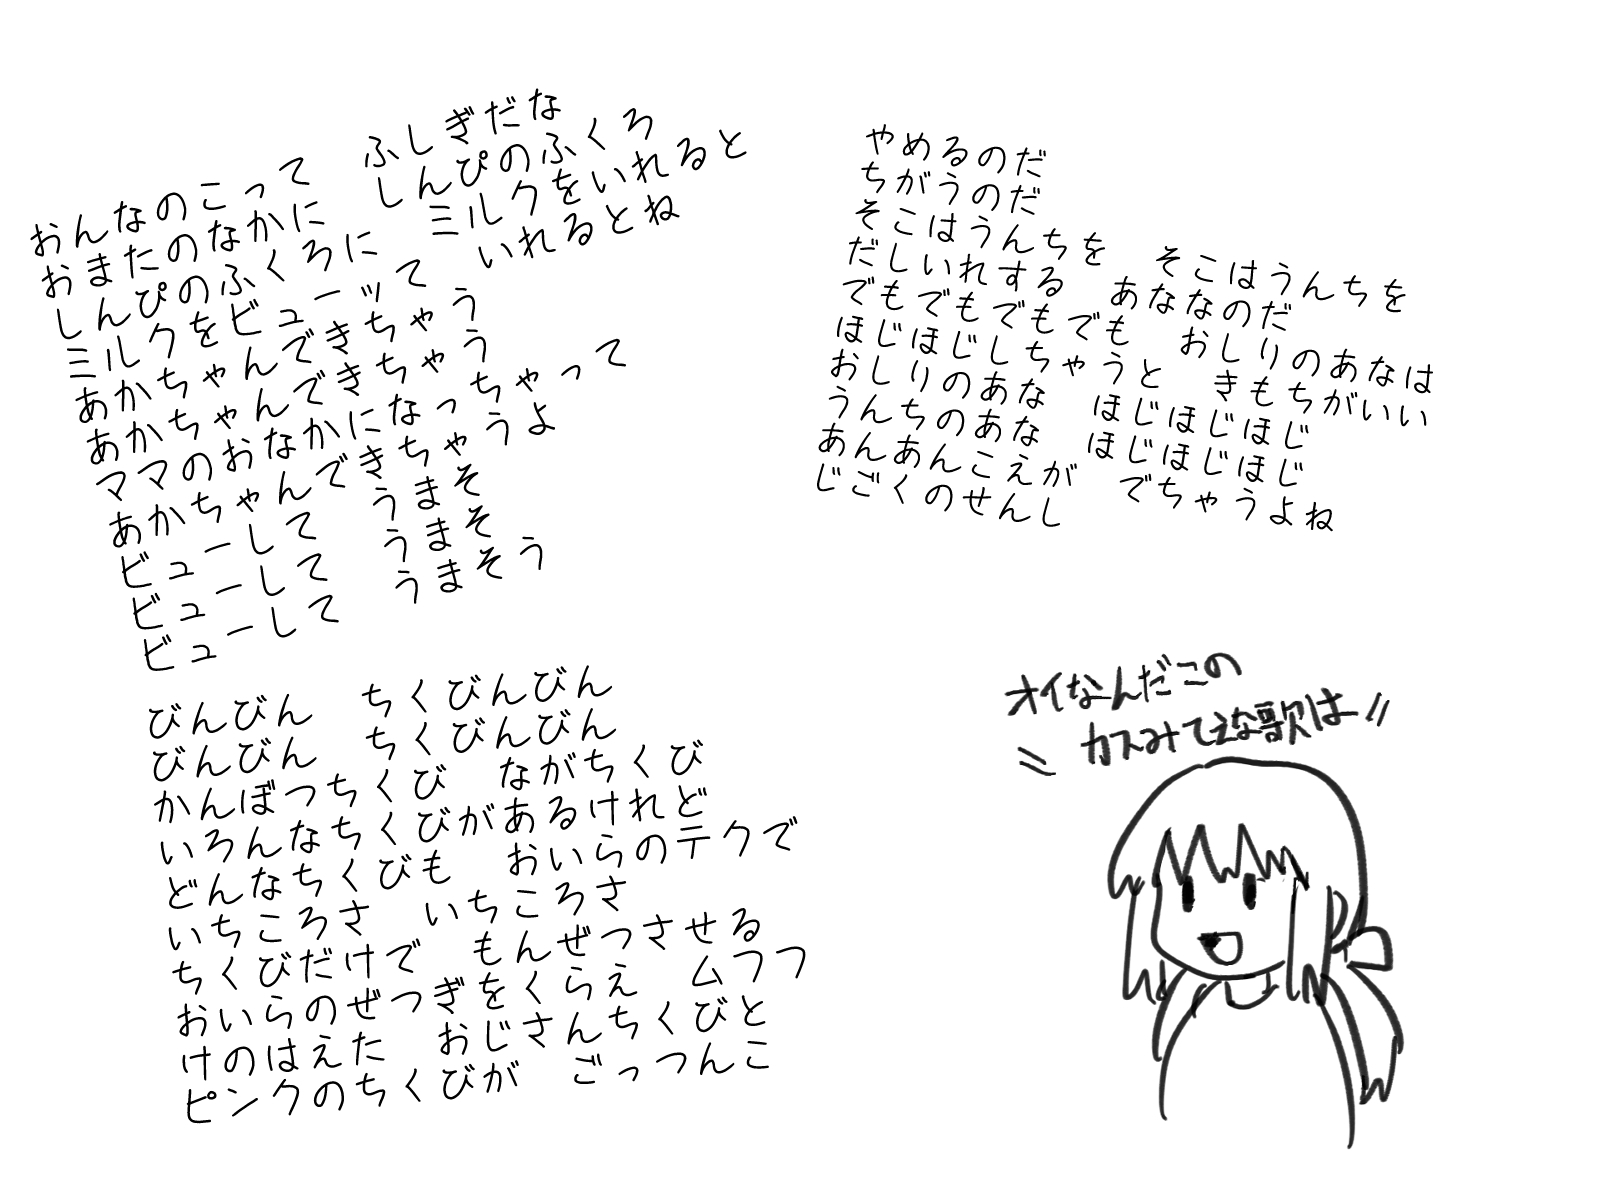 おんなのこって　ふしぎだな
おまたのなかに　しんぴのふくろ
しんぴのふくろに　ミルクをいれると
ミルクをビューッて　いれるとね
あかちゃんできちゃう
あかちゃんできちゃう
ママのおなかになっちゃって
あかちゃんできちゃうよ
ビューして　うまそ
ビューして　うまそ
ビューして　うまそう
やめるのだ
ちがうのだ
そこはうんちを　そこはうんちを
だしいれする　あななのだ
でもでもでもでも　おしりのあなは
ほじほじしちゃうと　きもちがいい
おしりのあな　ほじほじほじ
うんちのあな　ほじほじほじ
あんあんこえが　でちゃうよね
じごくのせんし
びんびん　ちくびんびん
びんびん　ちくびんびん
かんぼつちくび　ながちくび
いろんなちくびがあるけれど
どんなちくびも　おいらのテクで
いちころさ　いちころさ
ちくびだけで　もんぜつさせる
おいらのぜつぎをくらえ　ムフフ
けのはえた　おじさんちくびと
ピンクのちくびが　ごっつんこ
オイなんだこの
カスみてぇな歌は